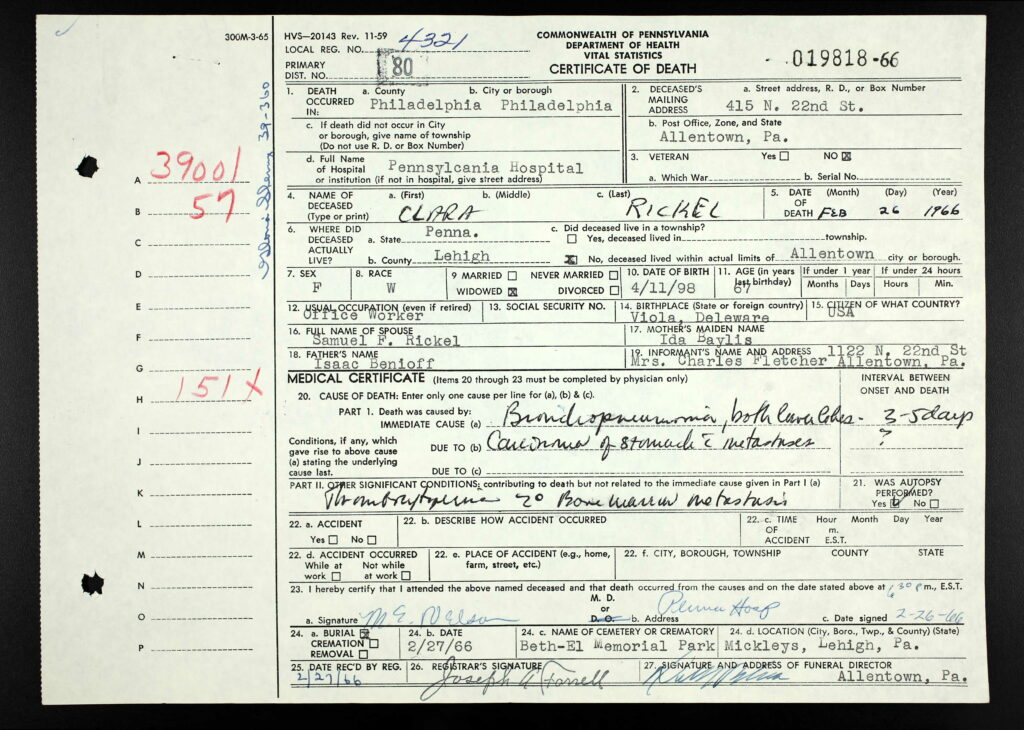 300M-3-65
HVS—20143 Rev. 11-59
LOCAL REG. NO. 4321
PRIMARY DIST. NO. 80
COMMONWEALTH OF PENNSYLVANIA
DEPARTMENT OF HEALTH
VITAL STATISTICS
CERTIFICATE OF DEATH
019818-66
1. DEATH OCCURRED IN: a. County Philadelphia b. City or borough Philadelphia
c. If death did not occur in City or borough, give name of township (Do not use R. D. or Box Number)
d. Full Name of Hospital or institution (if not in hospital, give street address) Pennsylcania Hospital
2. DECEASED'S MAILING ADDRESS a. Street address, R. D., or Box Number
415 N. 22nd St.
b. Post Office, Zone, and State
Allentown, Pa.
3. VETERAN Yes NO
a. Which War b. Serial No.
4. NAME OF DECEASED (Type or print) a. (First) CLARA b. (Middle) c. (Last) RICKEL
5. DATE OF DEATH (Month) FEB (Day) 26 (Year) 1966
6. WHERE DID DECEASED ACTUALLY LIVE? a. State Penna.
b. County Lehigh
c. Did deceased live in a township?
Yes, deceased lived in township.
No, deceased lived within actual limits of Allentown city or borough.
7. SEX F
8. RACE W
9 MARRIED NEVER MARRIED
WIDOWED DIVORCED
10. DATE OF BIRTH 4/11/98
11. AGE (in years last birthday) 67
If under 1 year Months Days
If under 24 hours Hours Min.
12. USUAL OCCUPATION (even if retired) Office Worker
13. SOCIAL SECURITY NO.
14. BIRTHPLACE (State or foreign country) Viola, Deleware
15. CITIZEN OF WHAT COUNTRY? USA
16. FULL NAME OF SPOUSE Samuel F. Rickel
17. MOTHER'S MAIDEN NAME Ida Baylis
18. FATHER'S NAME Isaac Benioff
19. INFORMANT'S NAME AND ADDRESS 1122 N. 22nd St
Mrs. Charles Fletcher Allentown, Pa.
MEDICAL CERTIFICATE (Items 20 through 23 must be completed by physician only)
INTERVAL BETWEEN ONSET AND DEATH
20. CAUSE OF DEATH: Enter only one cause per line for (a), (b) & (c).
PART 1. Death was caused by:
IMMEDIATE CAUSE (a) Bronchopneumonia, both lower lobes - 3-5 days
Conditions, if any, which gave rise to above cause (a) stating the underlying cause last.
DUE TO (b) Carcinoma of Stomach c̄ metastases ?
DUE TO (c)
PART II. OTHER SIGNIFICANT CONDITIONS; contributing to death but not related to the immediate cause given in Part I (a)
Thrombocytopenia 2° Bone marrow metastasis
21. WAS AUTOPSY PERFORMED?
Yes No
22. a. ACCIDENT
Yes No
22. b. DESCRIBE HOW ACCIDENT OCCURRED
22. c. TIME OF ACCIDENT Hour Month Day Year
m. E.S.T.
22. d. ACCIDENT OCCURRED
While at work Not while at work
22. e. PLACE OF ACCIDENT (e.g., home, farm, street, etc.)
22. f. CITY, BOROUGH, TOWNSHIP COUNTY STATE
23. I hereby certify that I attended the above named deceased and that death occurred from the causes and on the date stated above at 6:30 p m., E.S.T.
a. Signature M E. Nelson M. D. or D. O. b. Address Penna Hosp c. Date signed 2-26-66
24. a. BURIAL
CREMATION
REMOVAL
24. b. DATE
2/27/66
24. c. NAME OF CEMETERY OR CREMATORY
Beth-El Memorial Park
24. d. LOCATION (City, Boro., Twp., & County) (State)
Mickleys, Lehigh, Pa.
25. DATE REC'D BY REG.
2/27/66
26. REGISTRAR'S SIGNATURE
Joseph A Farrell
27. SIGNATURE AND ADDRESS OF FUNERAL DIRECTOR
Allentown, Pa.
A 39001
B 57
C
D
E
F
G
H 151 X
I
J
K
L
M
N
O
P
39-360